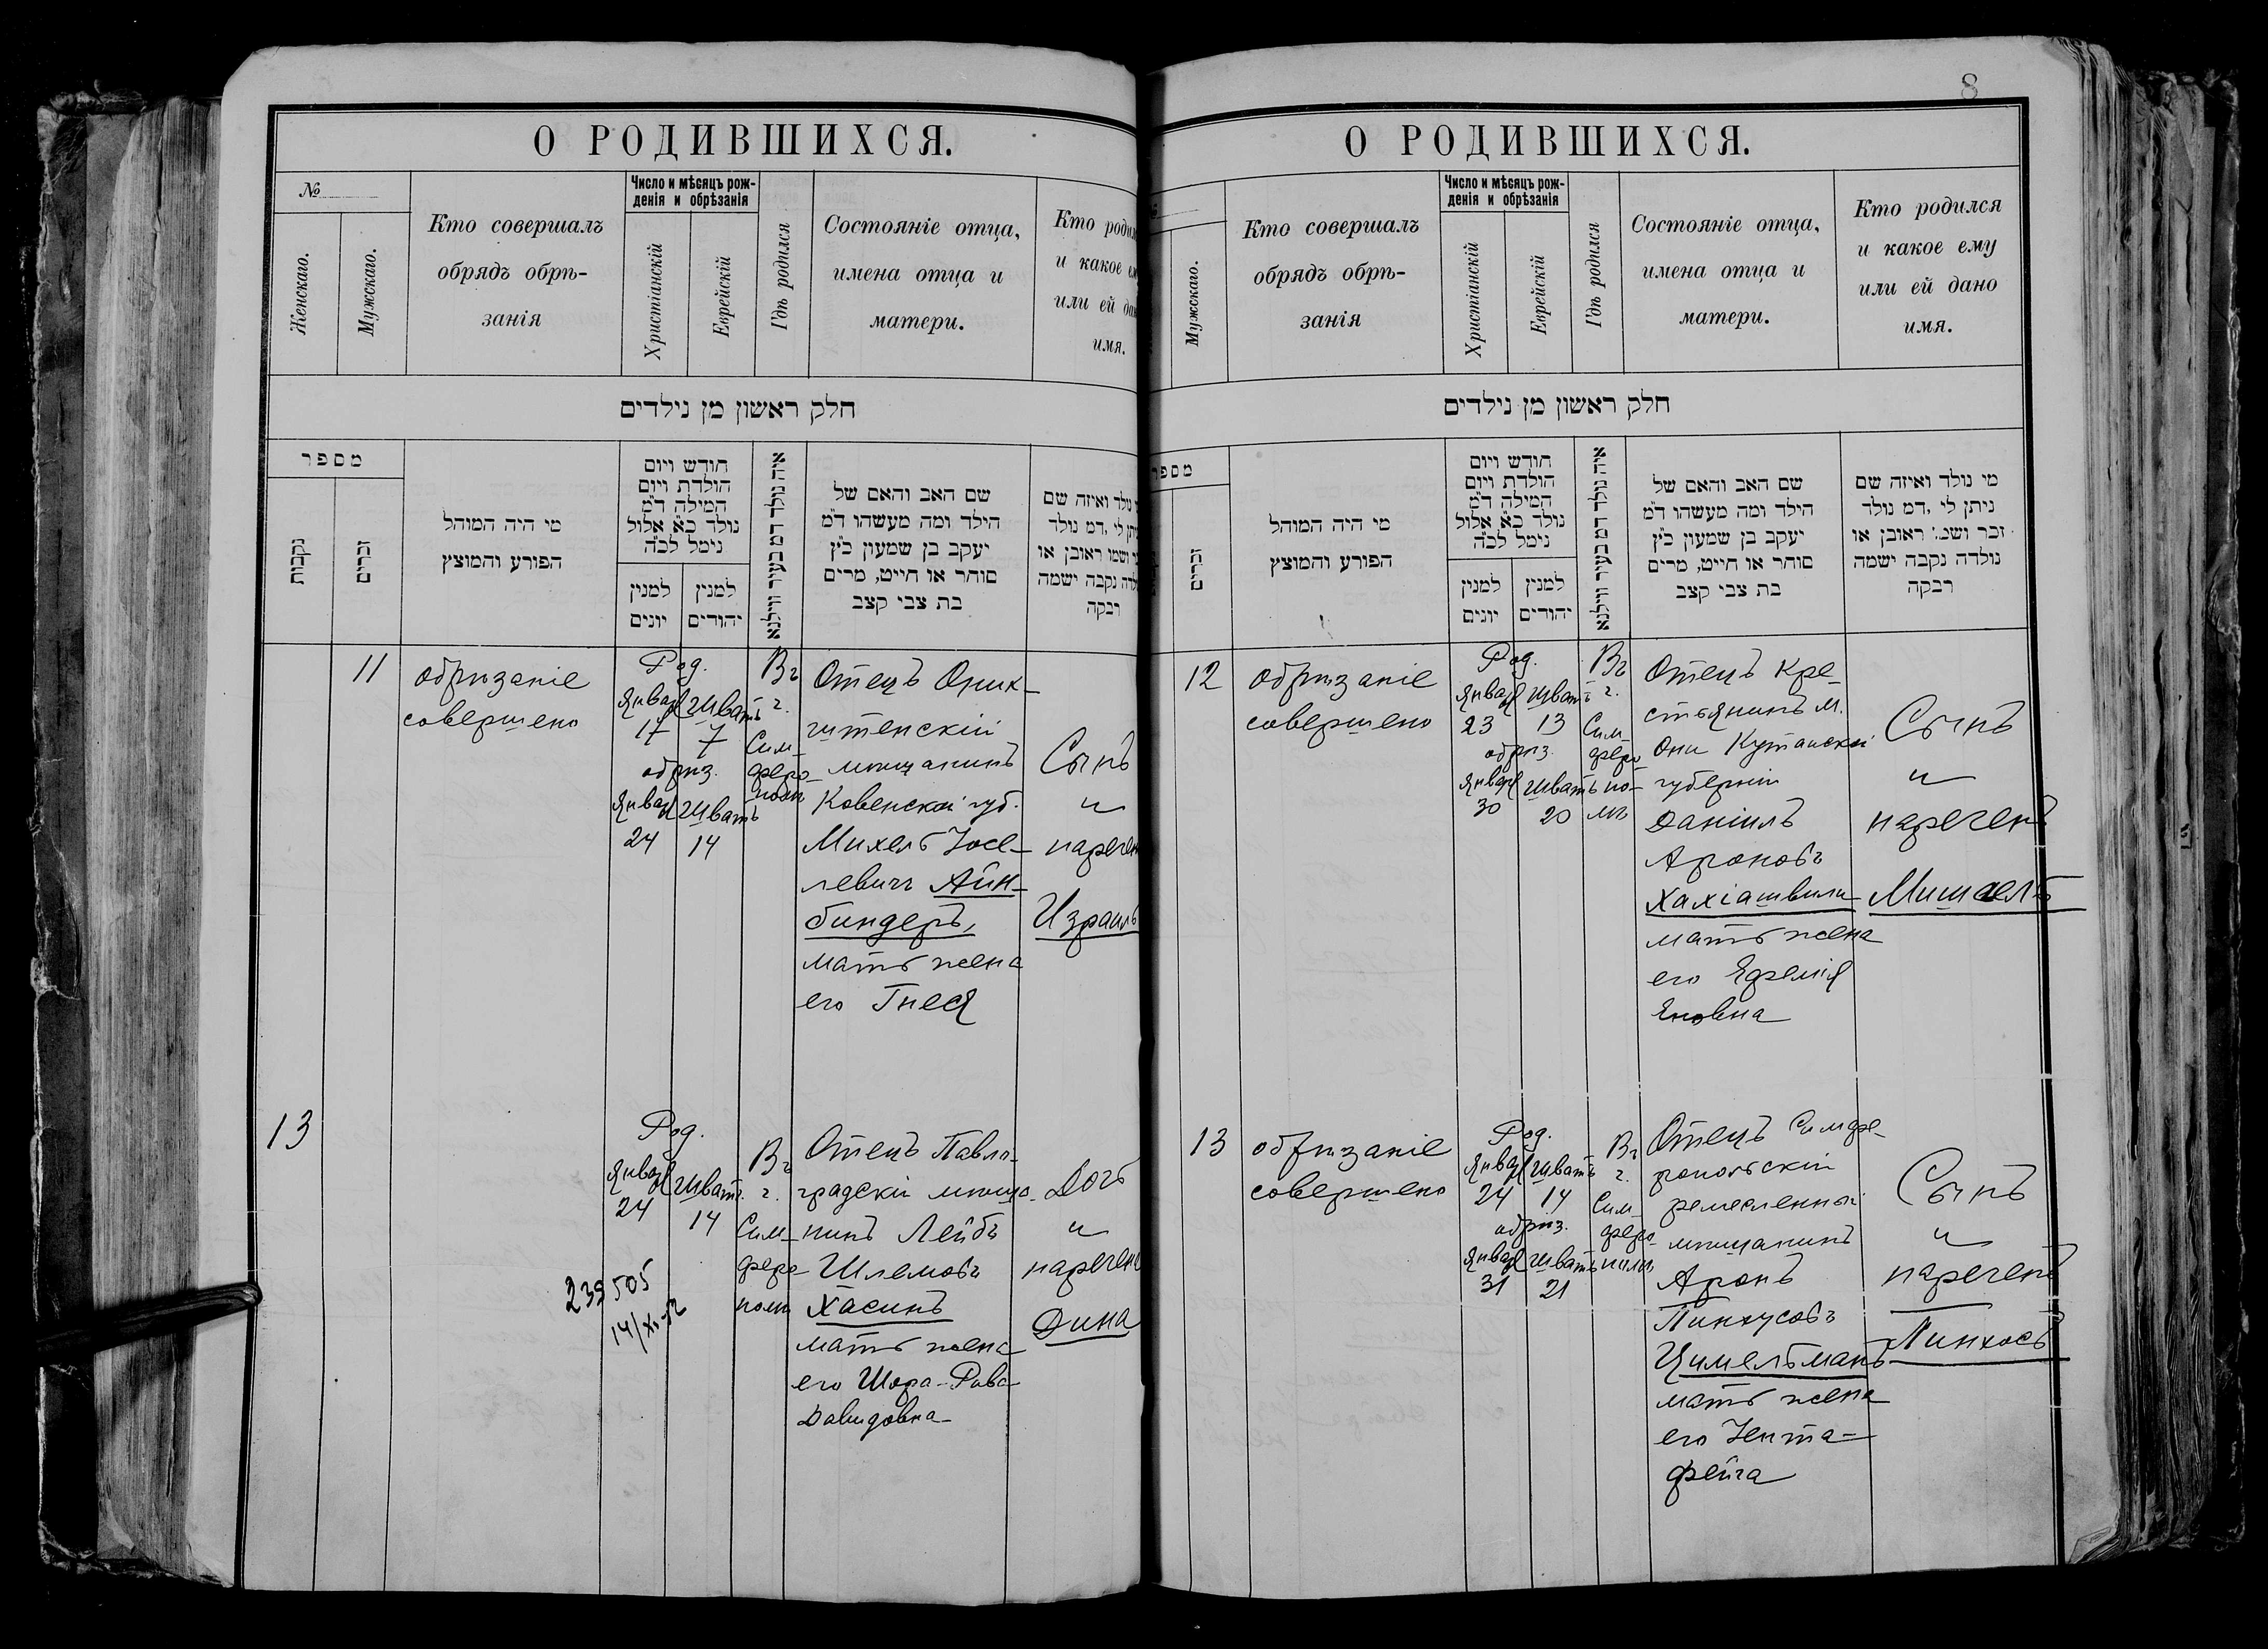 8
О РОДИВШИХСЯ.
№
Женскаго.
Мужскаго.
Кто совершалъ
обрядъ обрѣ-
занія
Число и мѣсяцъ рож-
денія и обрѣзанія
Христіанскій
Еврейскій
Гдѣ родился
Состояніе отца,
имена отца и
матери.
Кто родил
и какое ем
или ей дан
имя.
חלק ראשון מן נילדים
מספר
נקבות
זכרים
מי היה המוהל
הפורע והמוצץ
חודש ויום
הולדת ויום
המילה ד״מ
נולד כ״א אלול
נימל לכ״ה
למנין
יונים
למנין
יהודים
איה נולד דמ בעיר ווילנא
שם האב והאם של
הילד ומה מעשהו ד״מ
יעקב בן שמעון כ״ץ
סוחר או חייט, מרים
בת צבי קצב
נולד ואיזה שם
יתן לי ,דמ נולד
ושמו ראובן או
נקבה ישמה
רבקה
11
обрѣзаніе
совершено
Род.
Январ Шватъ
17 7
обрѣз.
Январ Шватъ
24 14
Въ
г.
Сим-
феро-
полѣ
Отецъ Оник-
штенскій
мѣщанинъ
Ковенской губ.
Михель Іосе-
левичъ Айн-
биндеръ,
мать жена
его Гнеся
Сынъ
и
наречен
Израиль
13
Род.
Январ Шватъ
24 14
Въ
г.
Сим-
феро-
полѣ
Отецъ Павло-
градскій мѣща-
нинъ Лейбъ
Шлемовъ
Хасинъ
мать жена
его Шора-Рива
Давидовна
Дочь
и
наречена
Дина
239505
О РОДИВШИХСЯ.
Мужскаго.
Кто совершалъ
обрядъ обрѣ-
занія
Число и мѣсяцъ рож-
денія и обрѣзанія
Христіанскій
Еврейскій
Гдѣ родился
Состояніе отца,
имена отца и
матери.
Кто родился
и какое ему
или ей дано
имя.
חלק ראשון מן נילדים
מספר
זכרים
מי היה המוהל
הפורע והמוצץ
חודש ויום
הולדת ויום
המילה ד״מ
נולד כ״א אלול
נימל לכ״ה
למנין
יונים
למנין
יהודים
איה נולד דמ בעיר ווילנא
שם האב והאם של
הילד ומה מעשהו ד״מ
יעקב בן שמעון כ״ץ
סוחר או חייט, מרים
בת צבי קצב
מי נולד ואיזה שם
ניתן לי ,דמ נולד
זכר ושמ׳ ראובן או
נולדה נקבה ישמה
רבקה
12
обрѣзаніе
совершено
Род.
Январ Шватъ
23 13
обрѣз.
Январ Шватъ
30 20
Въ
г.
Сим-
феро-
по-
лѣ
Отецъ Кре-
стьянинъ м.
Они Кутаиской
губерніи
Даніилъ
Ароновъ
Хахіашвили
мать жена
его Ефемія
Яновна
Сынъ
и
нареченъ
Мишаелъ
13
обрѣзаніе
совершено
Род.
Январ Шватъ
24 14
обрѣз.
Январ Шватъ
31 21
Въ
г.
Сим-
феро-
полѣ
Отецъ Симфе-
ропольскій
ремесленный
мѣщанинъ
Аронъ
Пинхусовъ
Цимельманъ
мать жена
его Ента-
Фейга
Сынъ
и
нареченъ
Пинхосъ